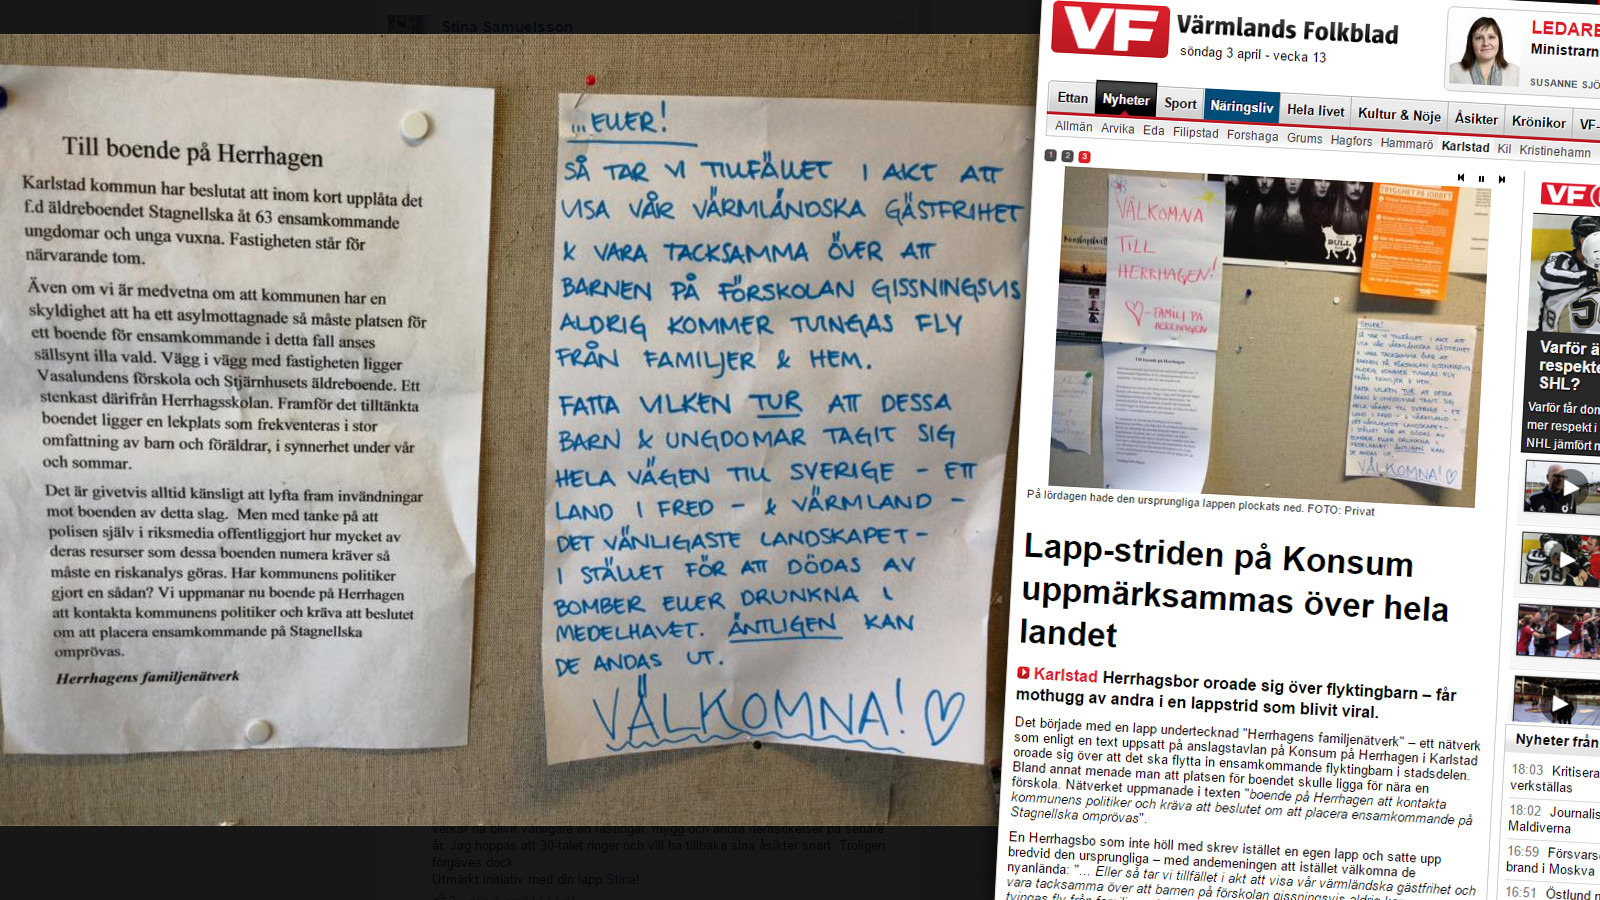 Stina Samuelsson
Till boende på Herrhagen
Karlstad kommun har beslutat att inom kort upplåta det
f.d äldreboendet Stagnellska åt 63 ensamkommande
ungdomar och unga vuxna. Fastigheten står för
närvarande tom.
Även om vi är medvetna om att kommunen har en
skyldighet att ha ett asylmottagnade så måste platsen för
ett boende för ensamkommande i detta fall anses
sällsynt illa vald. Vägg i vägg med fastigheten ligger
Vasalundens förskola och Stjärnhusets äldreboende. Ett
stenkast därifrån Herrhagsskolan. Framför det tilltänkta
boendet ligger en lekplats som frekventeras i stor
omfattning av barn och föräldrar, i synnerhet under vår
och sommar.
Det är givetvis alltid känsligt att lyfta fram invändningar
mot boenden av detta slag. Men med tanke på att
polisen själv i riksmedia offentliggjort hur mycket av
deras resurser som dessa boenden numera kräver så
måste en riskanalys göras. Har kommunens politiker
gjort en sådan? Vi uppmanar nu boende på Herrhagen
att kontakta kommunens politiker och kräva att beslutet
om att placera ensamkommande på Stagnellska
omprövas.
Herrhagens familjenätverk
...ELLER!
SÅ TAR VI TILLFÄLLET I AKT ATT
VISA VÅR VÄRMLÄNDSKA GÄSTFRIHET
& VARA TACKSAMMA ÖVER ATT
BARNEN PÅ FÖRSKOLAN GISSNINGSVIS
ALDRIG KOMMER TVINGAS FLY
FRÅN FAMILJER & HEM.
FATTA VILKEN TUR ATT DESSA
BARN & UNGDOMAR TAGIT SIG
HELA VÄGEN TILL SVERIGE - ETT
LAND I FRED - & VÄRMLAND -
DET VÄNLIGASTE LANDSKAPET -
I STÄLLET FÖR ATT DÖDAS AV
BOMBER ELLER DRUNKNA I
MEDELHAVET. ÄNTLIGEN KAN
DE ANDAS UT.
VÄLKOMNA!
verkar ha blivit vänligare än fästingar, mygg och andra hemsökelser på senare
år. Jag hoppas att 30-talet ringer och vill ha tillbaka sina åsikter snart. Troligen
förgäves dock.
Utmärkt initiativ med din lapp Stina!
VF
Värmlands Folkblad
söndag 3 april - vecka 13
LEDARE
Ministrarn
SUSANNE SJÖ
Ettan Nyheter Sport Näringsliv Hela livet Kultur & Nöje Åsikter Krönikor VF-
Allmän Arvika Eda Filipstad Forshaga Grums Hagfors Hammarö Karlstad Kil Kristinehamn
1 2 3
VÄLKOMNA
TILL
HERRHAGEN!
- FAMILJ PÅ
HERRHAGEN
BULL
Till boende på Herrhagen
...ELLER!
SÅ TAR VI TILLFÄLLET I AKT ATT
VISA VÅR VÄRMLÄNDSKA GÄSTFRIHET
& VARA TACKSAMMA ÖVER ATT
BARNEN PÅ FÖRSKOLAN GISSNINGSVIS
ALDRIG KOMMER TVINGAS FLY
FRÅN FAMILJER & HEM.
FATTA VILKEN TUR ATT DESSA
BARN & UNGDOMAR TAGIT SIG
HELA VÄGEN TILL SVERIGE - ETT
LAND I FRED - & VÄRMLAND -
DET VÄNLIGASTE LANDSKAPET -
I STÄLLET FÖR ATT DÖDAS AV
BOMBER ELLER DRUNKNA I
MEDELHAVET. ÄNTLIGEN KAN
DE ANDAS UT.
VÄLKOMNA!
På lördagen hade den ursprungliga lappen plockats ned. FOTO: Privat
Lapp-striden på Konsum
uppmärksammas över hela
landet
Karlstad Herrhagsbor oroade sig över flyktingbarn – får
mothugg av andra i en lappstrid som blivit viral.
Det började med en lapp undertecknad "Herrhagens familjenätverk" – ett nätverk
som enligt en text uppsatt på anslagstavlan på Konsum på Herrhagen i Karlstad
oroade sig över att det ska flytta in ensamkommande flyktingbarn i stadsdelen.
Bland annat menade man att platsen för boendet skulle ligga för nära en
förskola. Nätverket uppmanade i texten "boende på Herrhagen att kontakta
kommunens politiker och kräva att beslutet om att placera ensamkommande på
Stagnellska omprövas".
En Herrhagsbo som inte höll med skrev istället en egen lapp och satte upp
bredvid den ursprungliga – med andemeningen att istället välkomna de
nyanlända: "... Eller så tar vi tillfället i akt att visa vår värmländska gästfrihet och
vara tacksamma över att barnen på förskolan gissningsvis aldrig
tvingas fly från
VF
Varför ä
respekte
SHL?
Varför får don
mer respekt i
NHL jämfört m
Nyheter från
18:03 Kritisera
verkställas
18:02 Journalis
Maldiverna
16:59 Försvars
brand i Moskva
16:51 Östlund